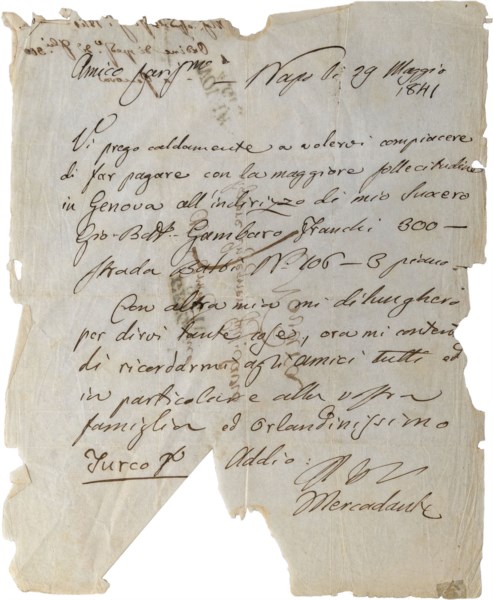 Amico Cariss.mo
Napoli 29 Maggio
1841
Vi prego caldamente a volervi compiacere
di far pagare con la maggiore sollecitudine
in Genova all'indirizzo di mio Suocero
Gio-Batt. Gambaro Franchi 300 —
Strada Balbi N.º 106 — 3 piano —
Con altra mia mi dilungherò
per dirvi tante cose, ora mi content
di ricordarmi agli amici tutti ed
in particolare alla vostra
famiglia ed Orlandinissimo
Turco
Addio:
Mercadante